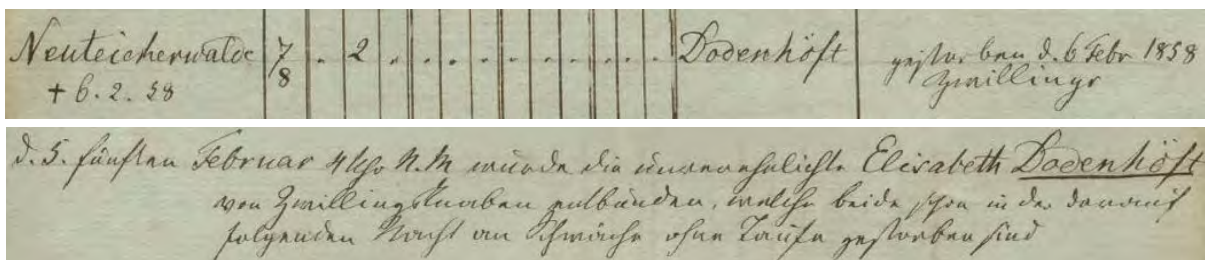 Neuteicherwalde 7 . 2 . . . . . . . . . . Dodenhöft gestorben d. 6 Febr 1858
+ 6. 2. 58 8 Zwillinge
d. 5. fünften Februar 4 Uhr N. M wurde die unverehelichte Elisabeth Dodenhöft
von Zwillingsknaben entbunden, welche beide schon in der darauf
folgenden Nacht an Schwäche ohne Taufe gestorben sind